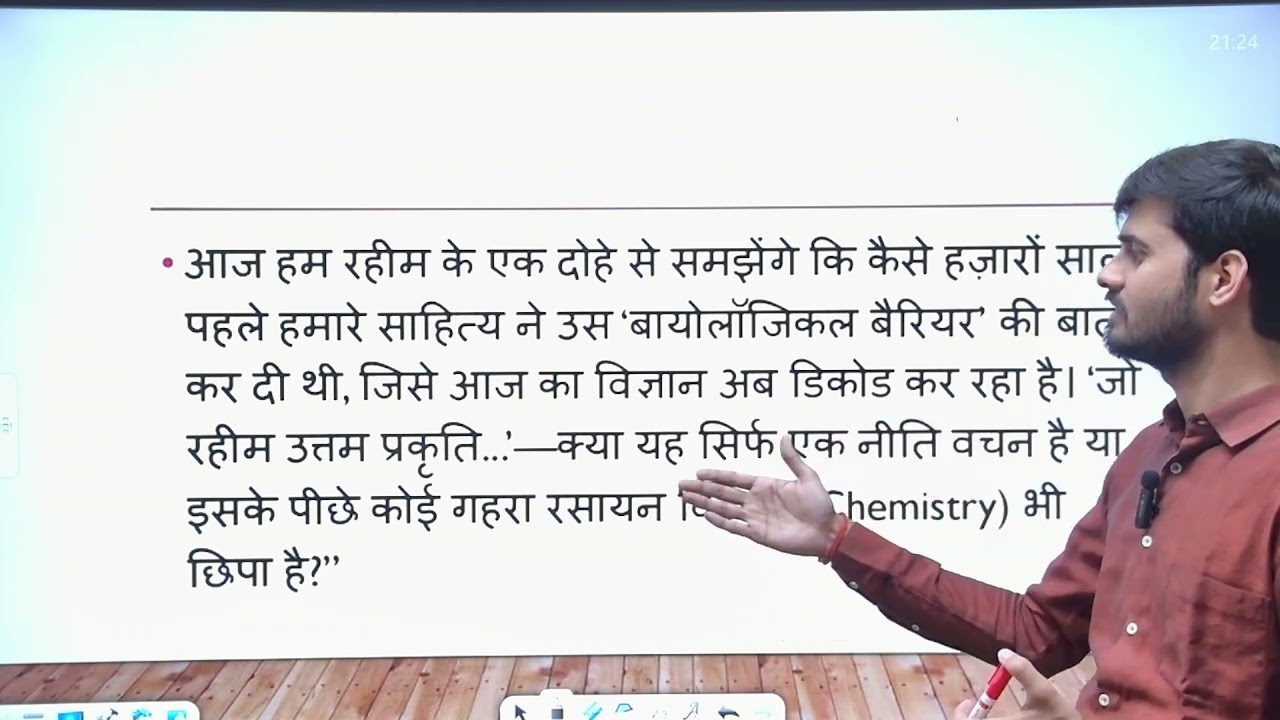 21:24
• आज हम रहीम के एक दोहे से समझेंगे कि कैसे हज़ारों
पहले हमारे साहित्य ने उस ‘बायोलॉजिकल बैरियर’ की
कर दी थी, जिसे आज का विज्ञान अब डिकोड कर रहा है। ‘जो
रहीम उत्तम प्रकृति...’—क्या यह सिर्फ एक नीति वचन है या
इसके पीछे कोई गहरा रसायन Chemistry) भी
छिपा है?”